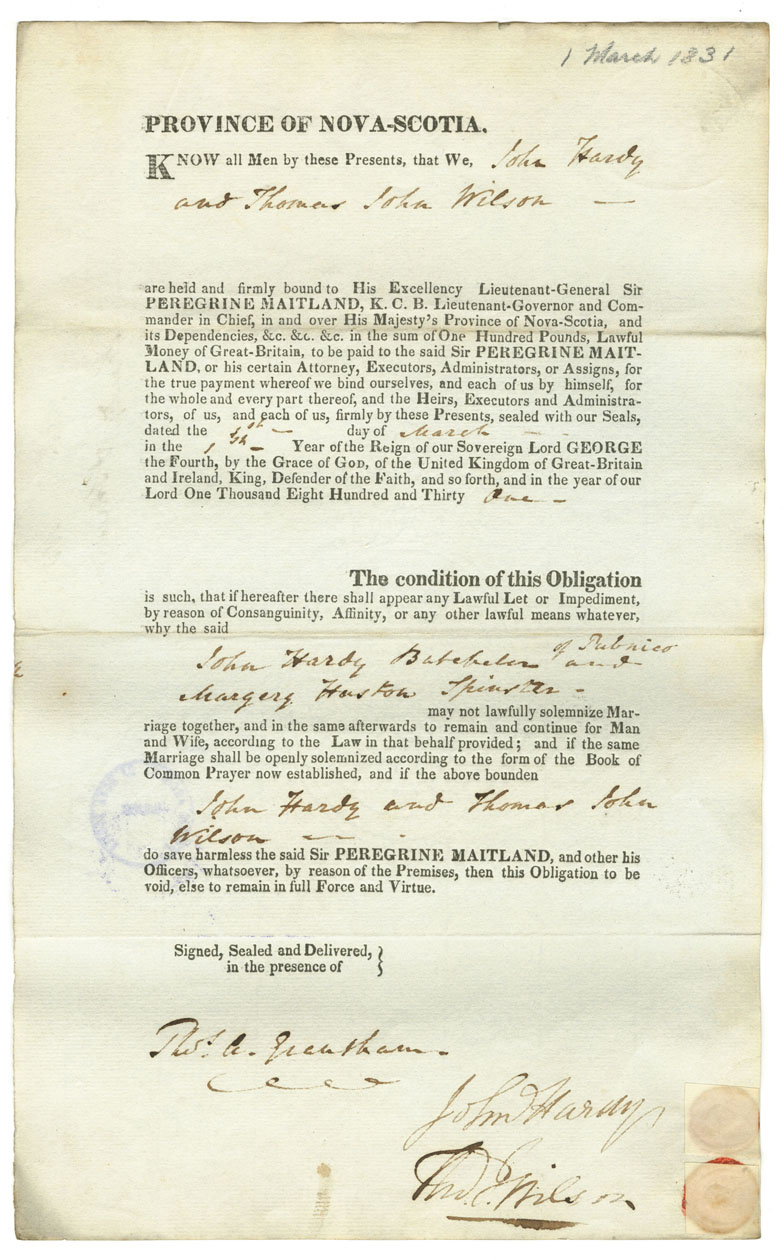 1 March 1831
PROVINCE OF NOVA-SCOTIA.
KNOW all Men by these Presents, that We, John Hardy
and Thomas John Wilson —
are held and firmly bound to His Excellency Lieutenant-General Sir
PEREGRINE MAITLAND, K. C. B. Lieutenant-Governor and Com-
mander in Chief, in and over His Majesty's Province of Nova-Scotia, and
its Dependencies, &c. &c. &c. in the sum of One Hundred Pounds, Lawful
Money of Great-Britain, to be paid to the said Sir PEREGRINE MAIT-
LAND, or his certain Attorney, Executors, Administrators, or Assigns, for
the true payment whereof we bind ourselves, and each of us by himself, for
the whole and every part thereof, and the Heirs, Executors and Administra-
tors, of us, and each of us, firmly by these Presents, sealed with our Seals,
dated the 1st — day of March —
in the Year of the Reign of our Sovereign Lord GEORGE
the Fourth, by the Grace of GOD, of the United Kingdom of Great-Britain
and Ireland, King, Defender of the Faith, and so forth, and in the year of our
Lord One Thousand Eight Hundred and Thirty One —
The condition of this Obligation
is such, that if hereafter there shall appear any Lawful Let or Impediment,
by reason of Consanguinity, Affinity, or any other lawful means whatever,
why the said
John Hardy Batcheler of Pubnico and
Margery Huston Spinster —
may not lawfully solemnize Mar-
riage together, and in the same afterwards to remain and continue for Man
and Wife, according to the Law in that behalf provided; and if the same
Marriage shall be openly solemnized according to the form of the Book of
Common Prayer now established, and if the above bounden
John Hardy and Thomas John
Wilson —
do save harmless the said Sir PEREGRINE MAITLAND, and other his
Officers, whatsoever, by reason of the Premises, then this Obligation to be
void, else to remain in full Force and Virtue.
Signed, Sealed and Delivered, }
in the presence of
Thos. A. Grantham.
John Hardy
Thos. J. Wilson